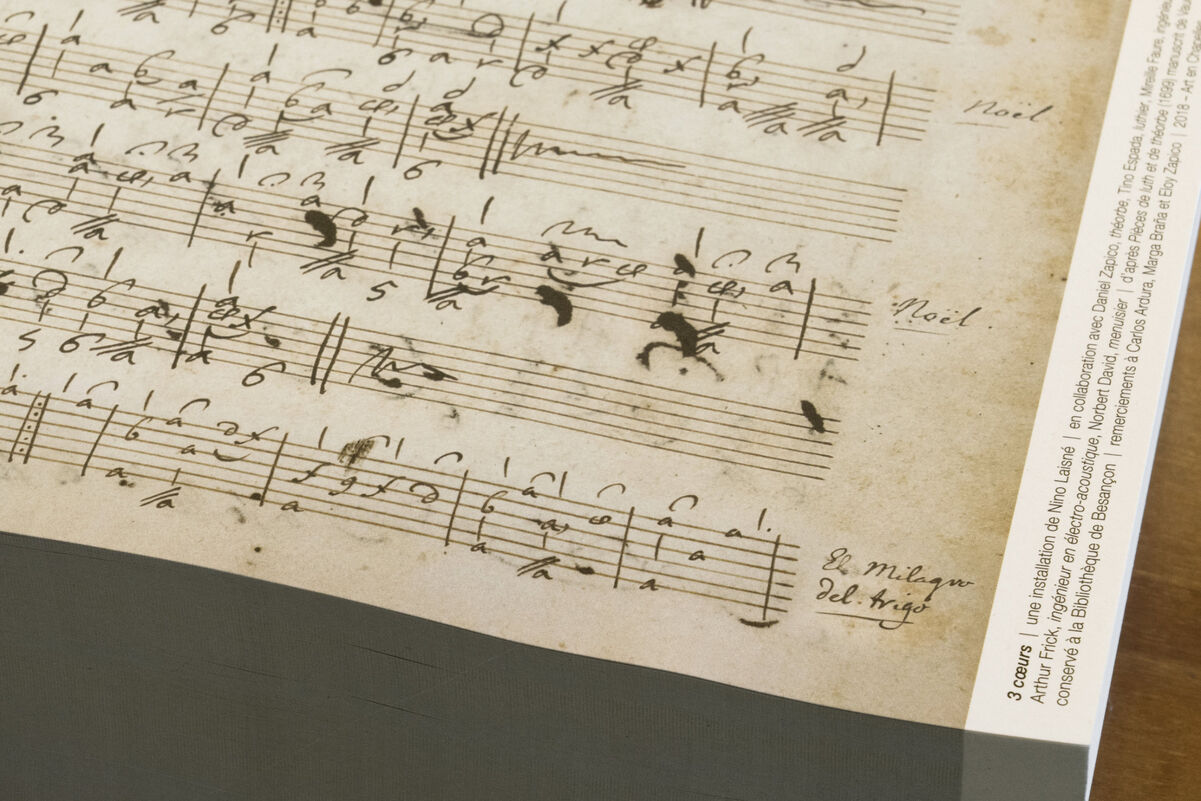 Noël.
Noël.
El Milagro
del trigo
3 cœurs | une installation de Nino Laisné | en collaboration avec Daniel Zapico, théorbe, Tino Espada, luthier, Mireille Faure,
Arthur Frick, ingénieur en électro-acoustique, Norbert David, menuisier | d'après Pièces de luth et de théorbe (1699) manuscrit de
conservé à la Bibliothèque de Besançon | remerciements à Carlos Ardura, Marga Braña et Eloy Zapico | 2018 - Art en